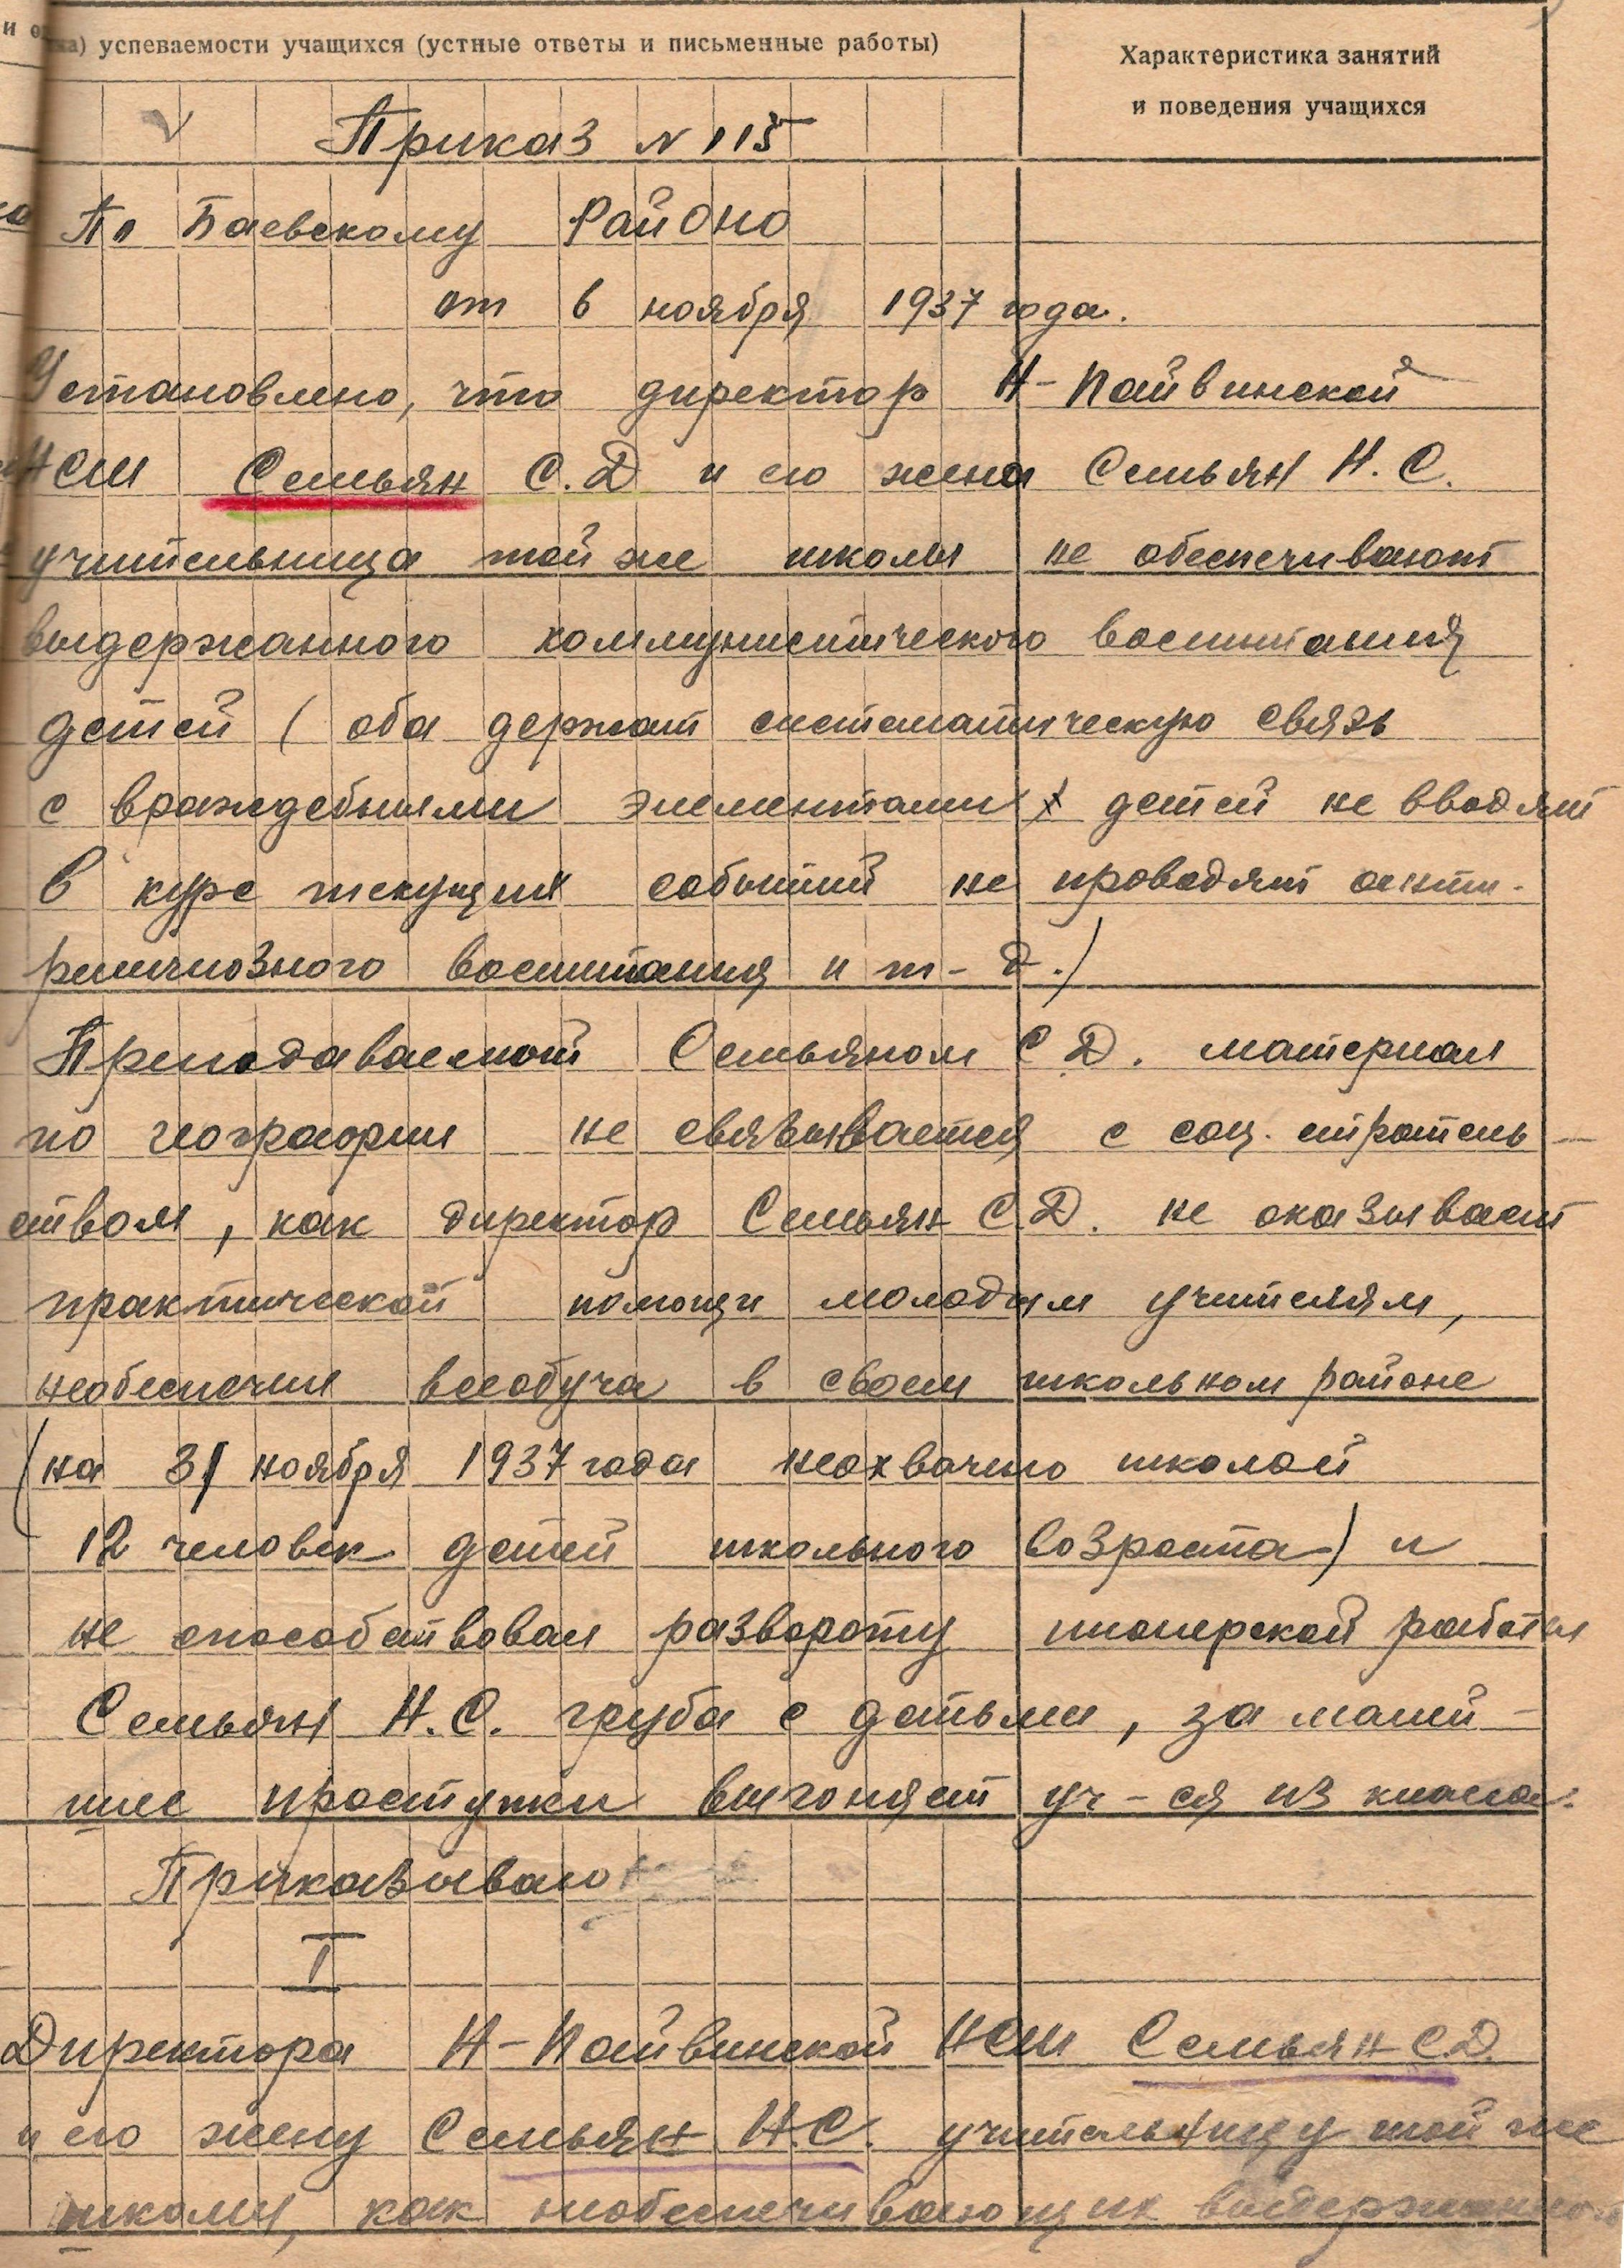 успеваемости учащихся (устные ответы и письменные работы)
Характеристика занятий
и поведения учащихся
Приказ № 115
По Баевскому РайОНО
от 6 ноября 1937 года.
Установлено, что директор Н-Пайвинской
НСШ Семьян С.Д и его жена Семьян Н.С.
учительница той же школы не обеспечивают
выдержанного коммунистического воспитания
детей (оба держат систематическую связь
с враждебными элементами детей не вводят
в курс текущих событий не проводят анти-
религиозного воспитания и т-д.)
Преподаваемой Семьяном С Д. материал
по географии не связывается с соц. строитель-
ством, как директор Семьян С.Д. не оказывает
практической помощи молодым учителям,
необеспечил всеобуча в своем школьном районе
(на 31 ноября 1937 года неохвачено школой
12 человек детей школьного возраста) и
не способствовал развороту пионерской работы
Семьян Н.С. груба с детьми, за малей-
шие проступки выгоняет уч-ся из класса.
Приказываю
I
Директора Н-Пайвинской НСШ Семьян С.Д.
и его жену Семьян Н.С. учительницу той же
школы, как необеспечивающих выдержанного